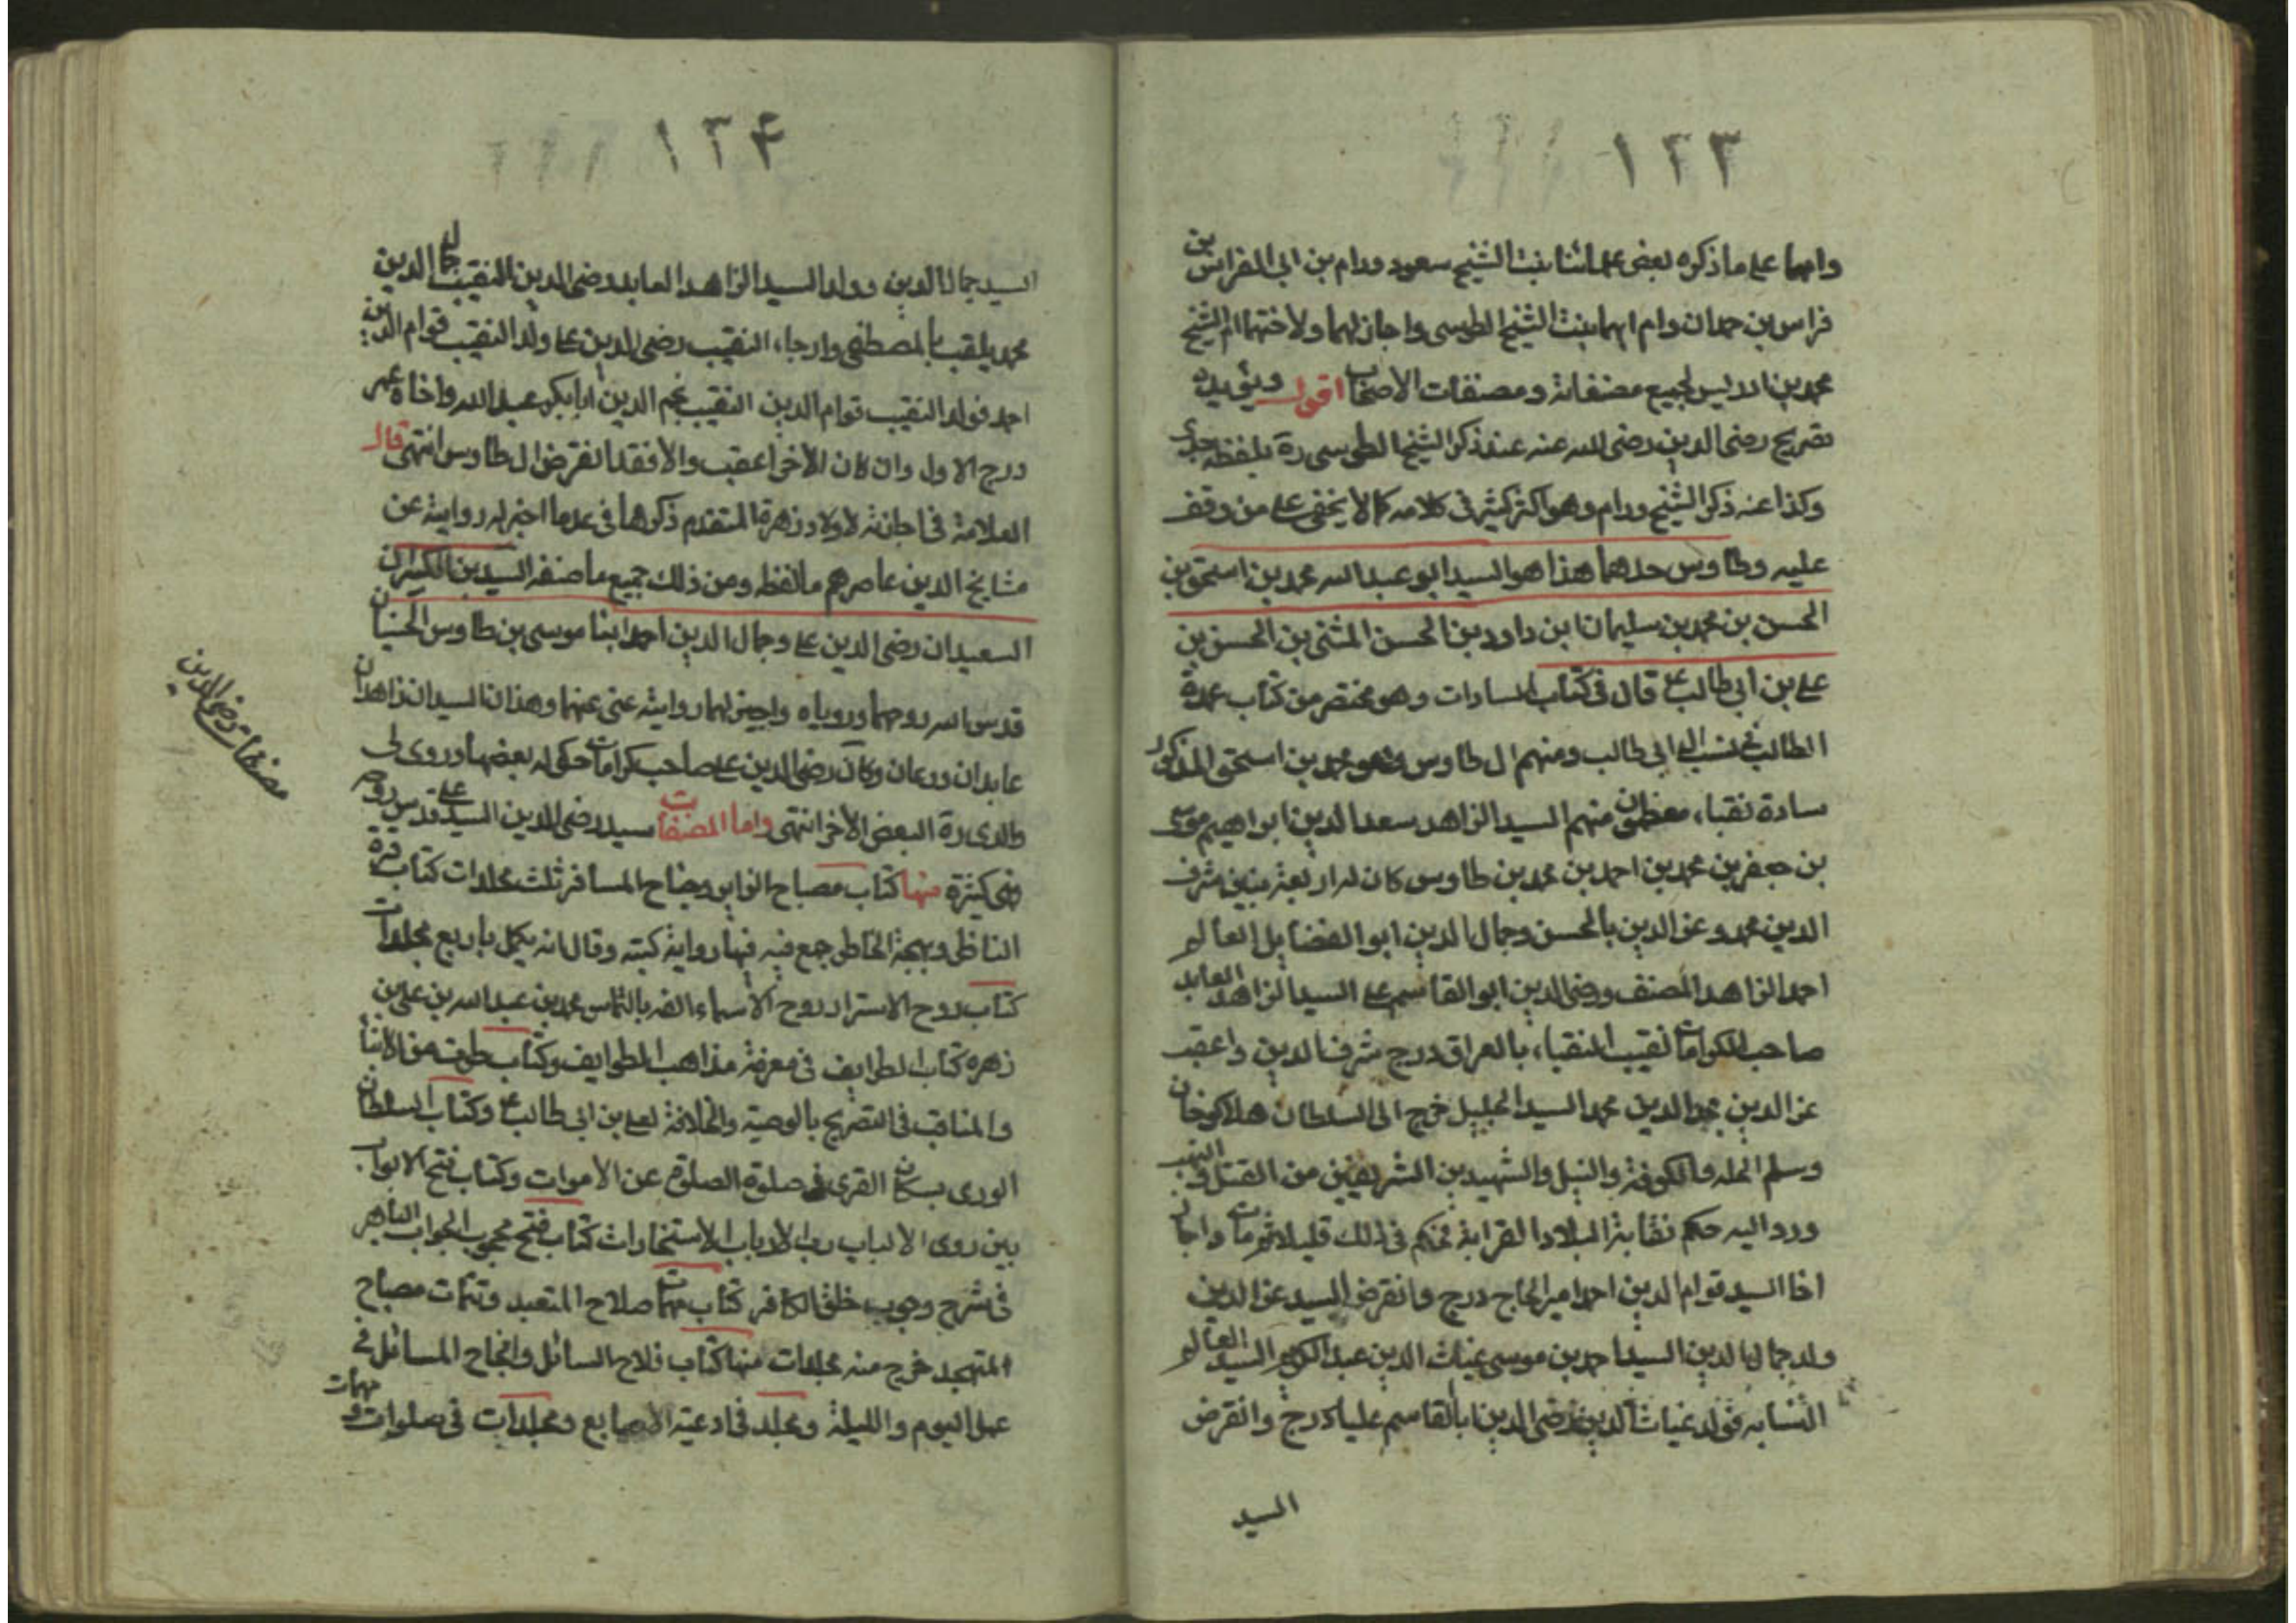 ١٢٣
وامهما على ما ذكره بعض علمائنا بنت الشيخ مسعود ورام بن ابى الفراس بن
فراس بن حمدان وام امهما بنت الشيخ الطوسى واجاز لهما ولاختهما ام الشيخ
محمد بن ادريس لجميع مصنفاته ومصنفات الاصحاب اقول ويؤيده
تصريح رضى الدين رضى الله عنه عند ذكر الشيخ الطوسى ره بلفظه جدى
وكذا عند ذكر الشيخ ورام وهو اكثر كثير فى كلامه كما لا يخفى على من وقف
عليه وطاوس جدهما هذا هو السيد ابو عبد الله محمد بن اسحق بن
الحسن بن محمد بن سليمان ابن داود بن الحسن المثنى بن الحسن بن
على بن ابى طالب ع قال فى كتاب السادات وهو مختصر من كتاب عمدة
الطالب فى نسب ال ابى طالب ومنهم ال طاوس وهو محمد بن اسحق المذكور
سادة نقباء معظمون منهم السيد الزاهد سعد الدين ابراهيم موسى
بن جعفر بن محمد بن احمد بن محمد بن طاوس كان له اربعة بنين شرف
الدين محمد وعز الدين بالحسن وجمال الدين ابو الفضايل العالم
احمد الزاهد المصنف ورضى الدين ابو القاسم على السيد الزاهد العابد
صاحب الكرامات نقيب النقباء بالعراق درج شرف الدين واعقب
عز الدين مجد الدين محمد السيد الجليل خرج الى السلطان هلاكوخان
وسلم الحله والكوفة والنيل والشهيدين الشريفين من القتل والنهب
ورد اليه حكم نقابة البلاد القراية فحكم فى ذلك قليلا ثم مات واجاز
اخا السيد قوام الدين احمد امير الحاج درج وانقرض السيد عز الدين
ولد جمال الدين السيد احمد بن موسى غياث الدين عبد الكريم السيد العالم
النسابه فولد غياث الدين رضى الدين ابا القاسم عليا درج وانقرض
السيد
١٢۴
السيد جمال الدين وولد السيد الزاهد العابد رضى الدين النقيب جمال الدين
محمد يلقب بالمصطفى وارجاء النقيب رضى الدين على ولد النقيب قوام الدين
احمد فولد النقيب قوام الدين النقيب نجم الدين ابا بكر عبد الله واخاه عمر
درج الاول وان كان الاخر اعقب والا فقد انقرض ال طاوس انتهى قال
العلامة فى اجازته لاولاد زهرة المتقدم ذكرها فى عد ما اجيز له روايته عن
مشايخ الدين عاصرهم ما لفظه ومن ذلك جميع ما صنفه السيدين الكبيران
السعيدان رضى الدين على وجمال الدين احمد ابنا موسى بن طاوس الحسنيان
قدس الله روحهما وروياه واجيز لهما روايته عنى عنهما وهذان السيدان زاهدان
عابدان ورعان وكان رضى الدين على صاحب كرامات حكى له بعضها وروى لى
والدى ره البعض الاخر انتهى واما المصنفات سيد رضى الدين السيد على قدس روحه
فهى كثيرة منها كتاب مصباح الزاير وجناح المسافر ثلث مجلدات كتاب قرة
الناظر وبهجة الخاطر جمع فيه فيها رواية كتبه وقال انه يكمل باربع مجلدات
كتاب روح الاسترار روح الاسماء الفه بالتماس محمد بن عبد الله بن على بن
زهره كتاب الطرايف فى معرفة مذاهب الطوايف وكتاب طرف من الانباء
والمناقب فى التصريح بالوصية والخلافة لعلى بن ابى طالب ع وكتاب السلطان
الورى بسكان القرى فى صلوة الصلوة عن الاموات وكتاب فتح الابواب
بين روى الالباب رب الارباب الاستخارات كتاب فتح محجوب الجواب الباهر
فى شرح وجوب خلق الكافر كتاب مهمات صلاح المتعبد وتتمات مصباح
المتهجد خرج منه مجلدات منها كتاب فلاح السائل وانجاح المسائل فى
عمل اليوم والليلة ومجلد فى ادعية الاسابع ومجلدات فى صلوات ومهمات
مصنفات رضى الدين